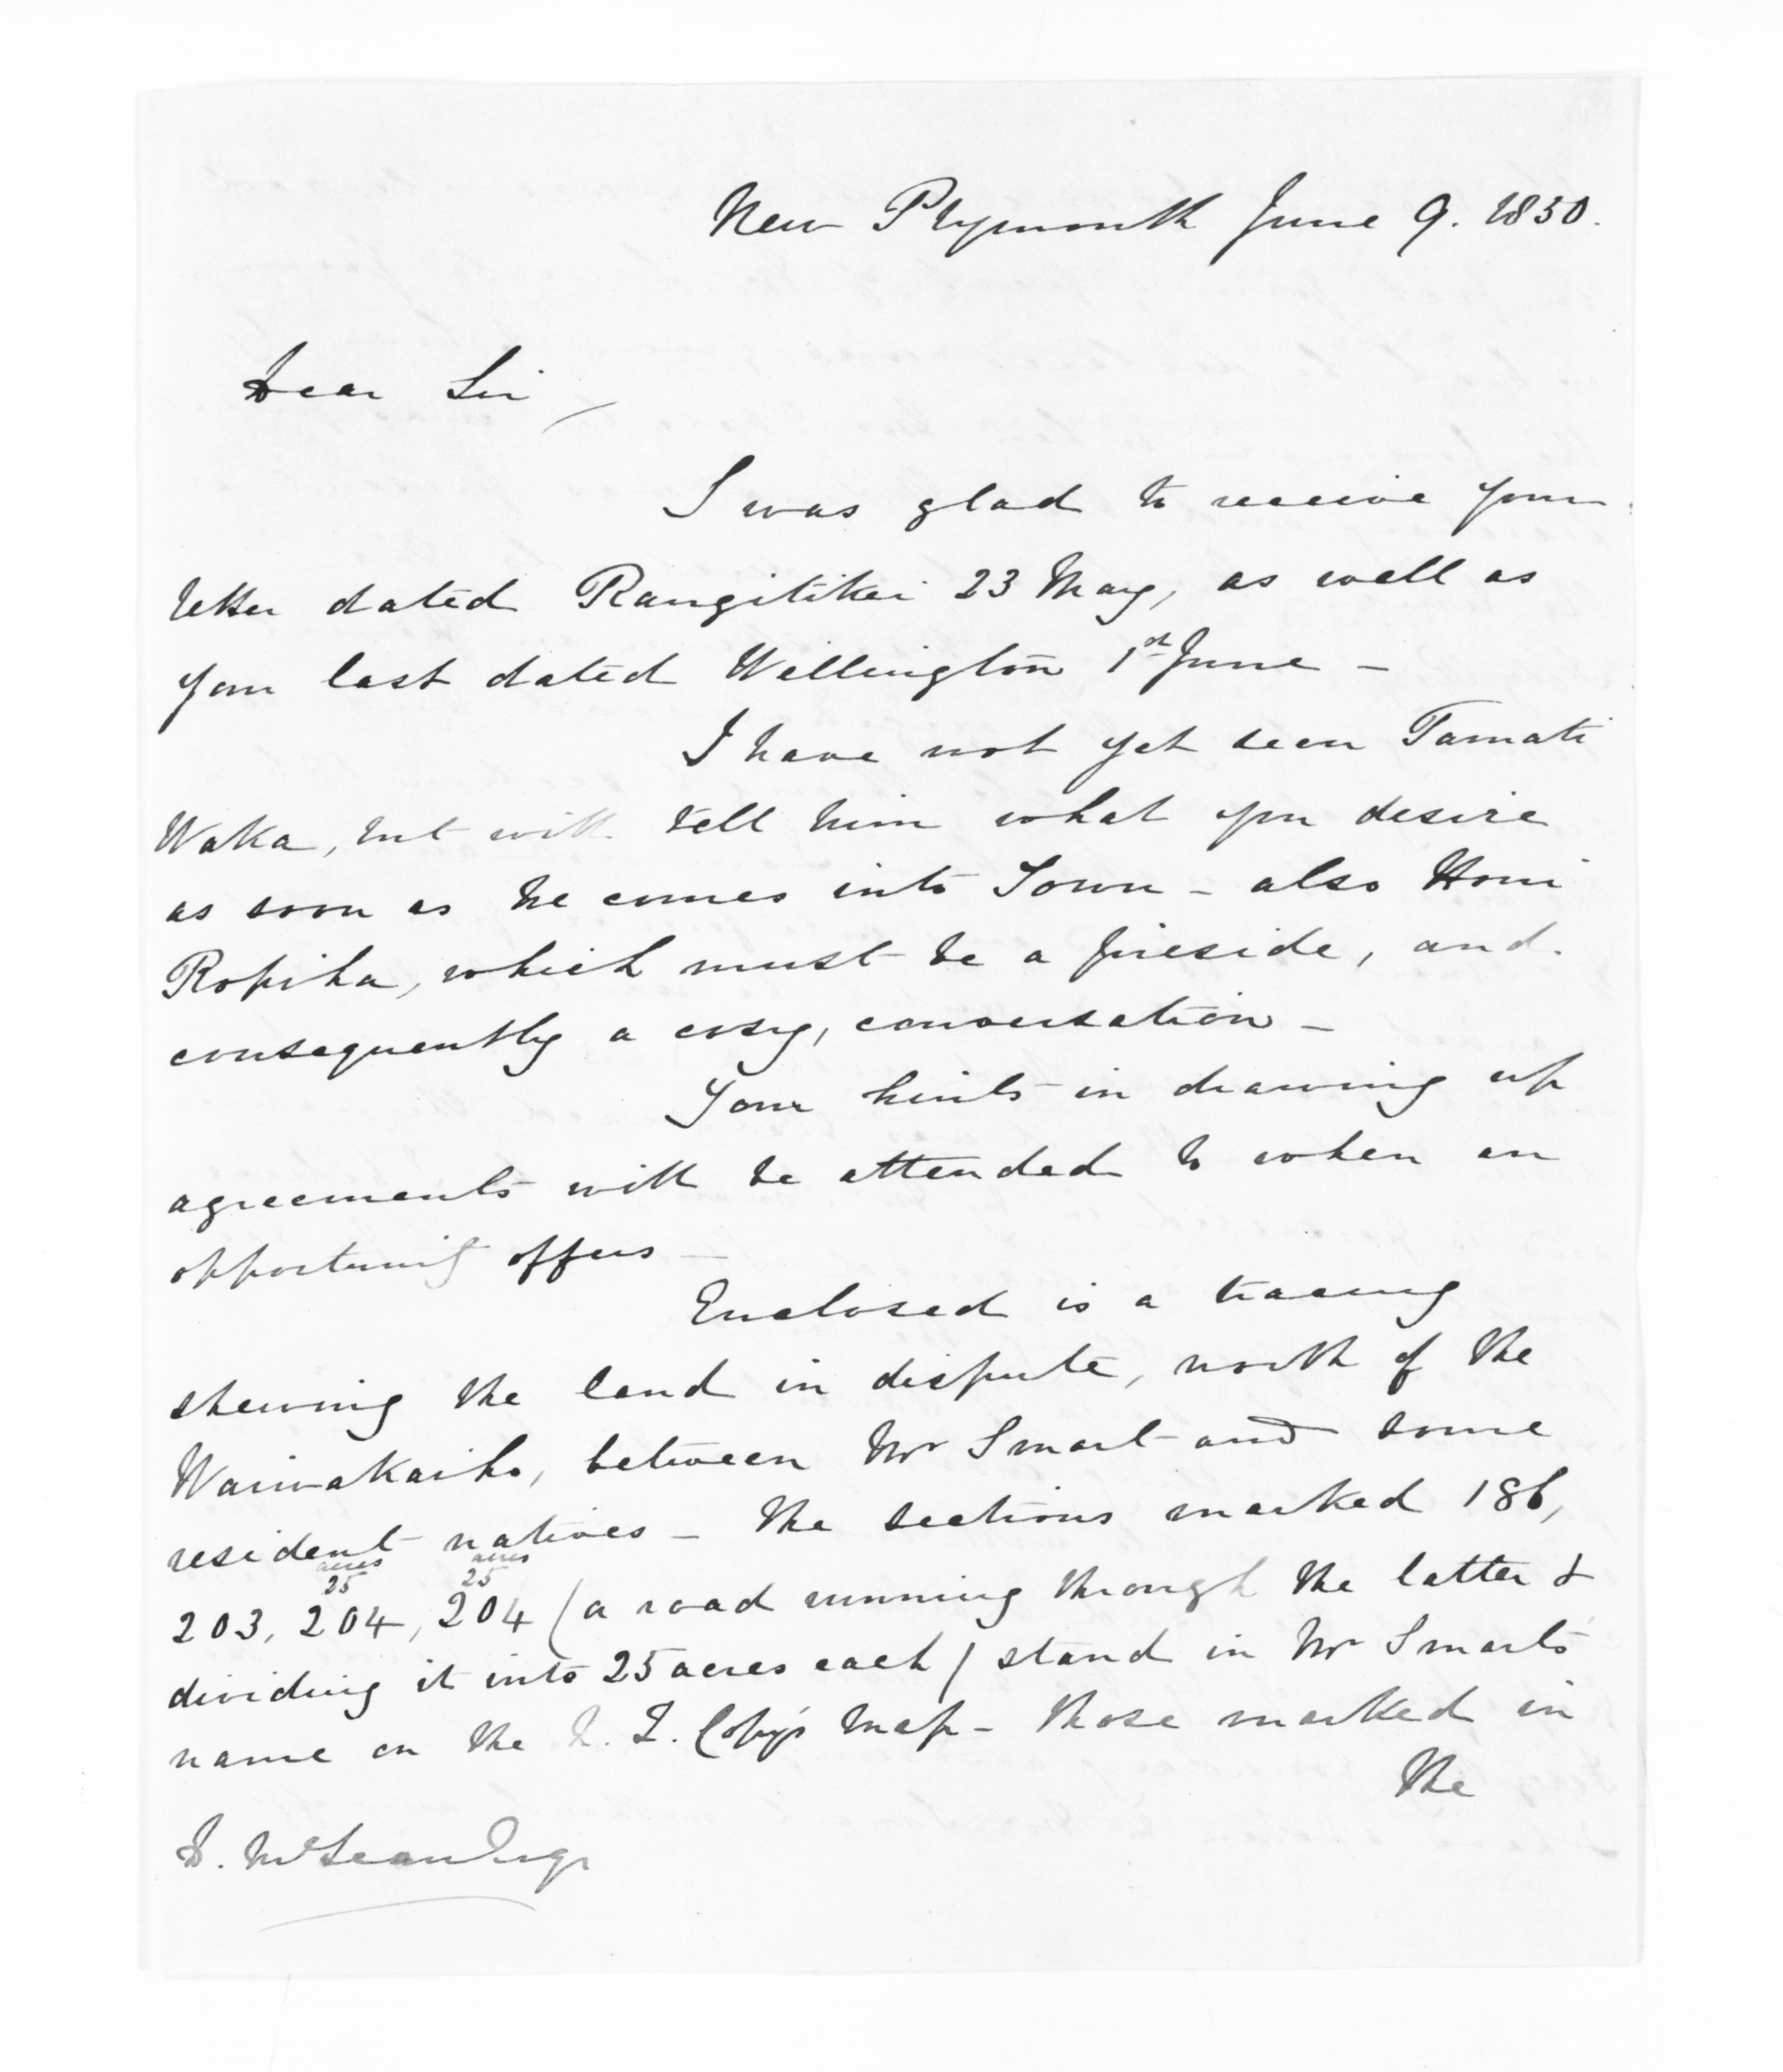 New Plymouth June 9. 1850.
Dear Sir,
I was glad to receive your
letter dated Rangitikei 23 May, as well as
your last dated Wellington 1st June -
I have not yet seen Tamati
Waka, but will tell him what you desire
as soon as he comes into Town - also Honi
Ropiha, which must be a fireside, and
consequently a cosy, conversation -
Your hints in drawing up
agreements will be attended to when an
opportunity offers -
Enclosed is a tracing
shewing the land in dispute, north of the
Waiwakaiho, between Mr Smart and some
resident natives - The sections marked 186,
acres acres
25 25
203, 204, 204 (a road running through the latter &
dividing it into 25 acres each) stand in Mr Smart's
name on the N. Z. Copy's map - those marked in
the
D. McLean Esqr